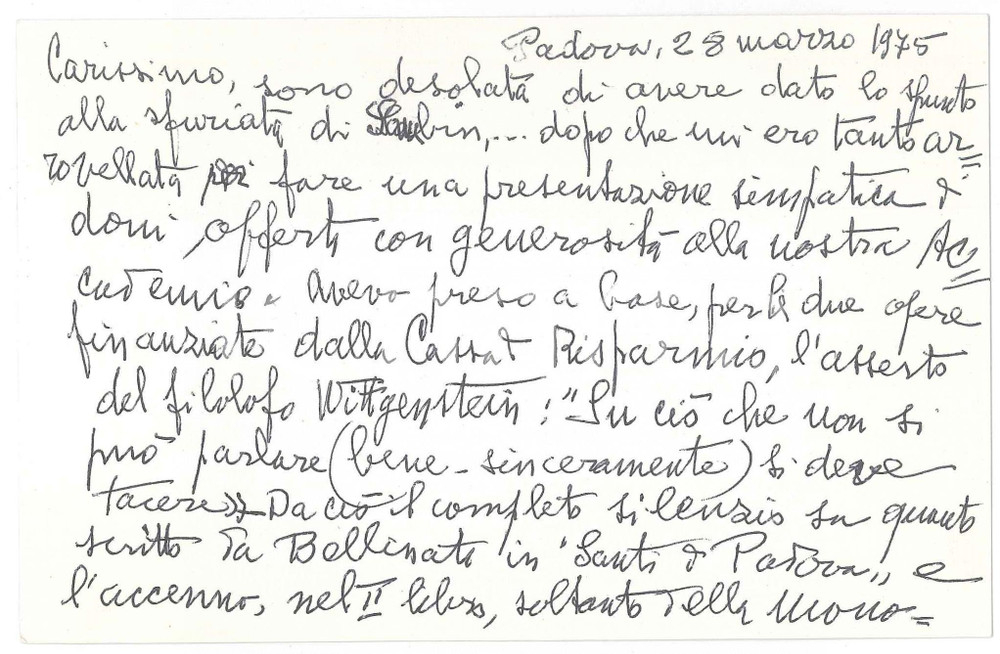 Padova, 28 marzo 1975
Carissimo, sono desolata di avere dato lo spunto
alla sfuriata di Sambin,... dopo che mi ero tanto ar=
rovellata per fare una presentazione simpatica di
doni, offerti con generosità alla nostra Ac=
cademia. Avevo preso a base, per le due opere
finanziate dalla Cassa di Risparmio, l'asserto
del filolofo Wittgenstein: "Su ciò che non si
può parlare (bene - sinceramente) si deve
tacere". Da ciò il completo silenzio su quanto
scritto da Bellinati in "Santi di Padova" e
l'accenno, nel II libro, soltanto della mono=